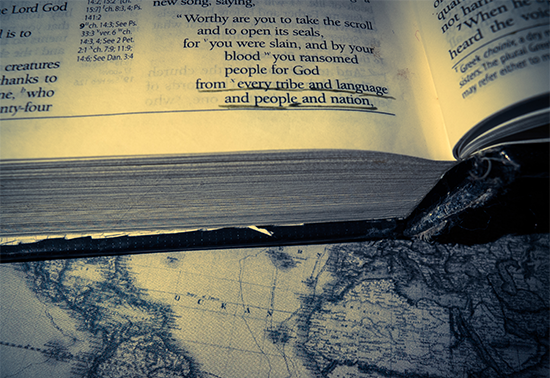 e Lord God
l is to
creatures
hanks to
ne, "who
nty-four
14:2; 15:2
15:7 ᵗch. 8:3, 4; Ps.
141:2
9 ᵘch. 14:3; See Ps.
33:3 ᵛver. 6 ʷch.
14:3, 4; See 2 Pet.
2:1 ˣch. 7:9; 11:9;
14:6; See Dan. 3:4
new song, saying,
"Worthy are you to take the scroll
and to open its seals,
for ᵛyou were slain, and by your
blood ʷyou ransomed
people for God
from ˣevery tribe and language
and people and nation,
qual
not harm
⁷When he
heard the
¹ Greek choinix, a dry
sisters. The plural Greek
may refer either to me
OCEAN